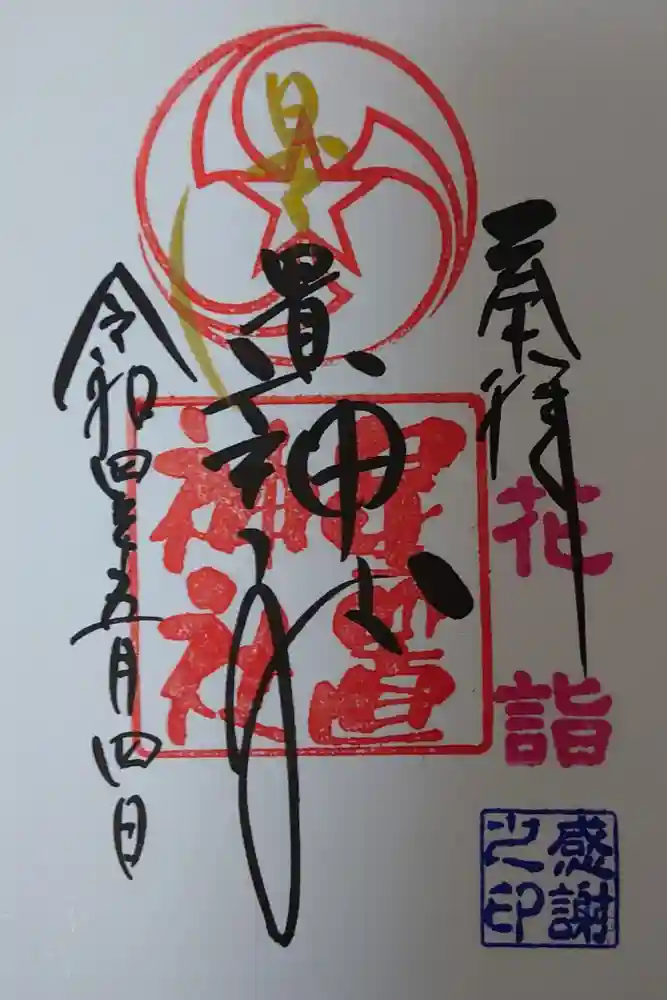 奉拝
花詣
感謝之印
星置神社
星置神社
令和四年五月四日